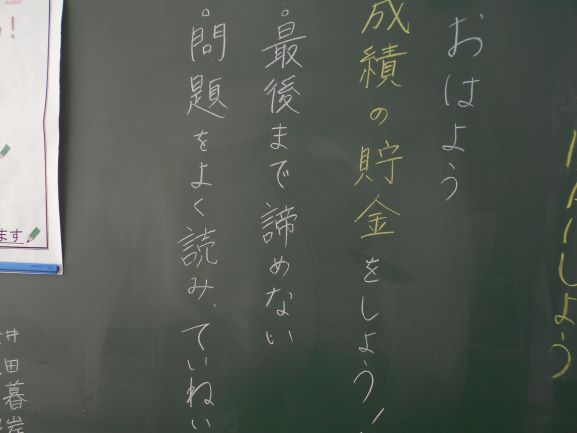 しよう
おはよう
成績の貯金をしよう!
・最後まで諦めない
・問題をよく読み、ていねい
ます
井
田暮岸